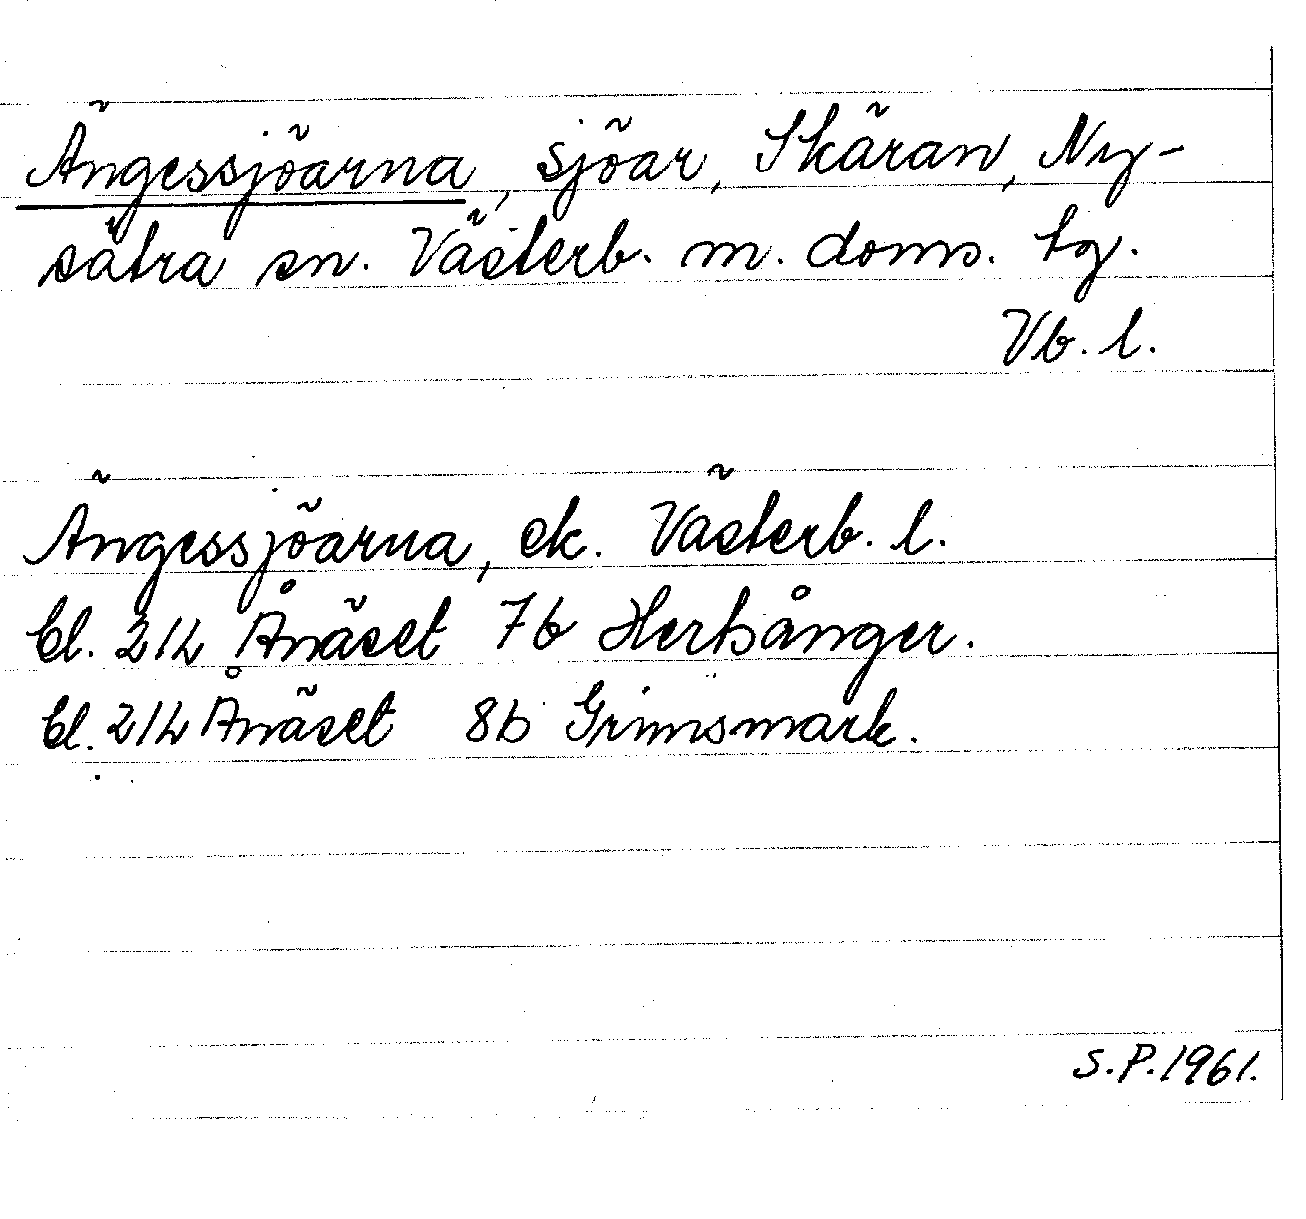 Ängessjöarna, sjöar, Skäran, Ny-
sätra sn. Västerb. m. doms. tg.
Vb. l.
Ängessjöarna, ek. Västerb. l.
bl. 21L Ånäset 7b Hertsånger.
bl. 21L Ånäset 8b Grimsmark.
S.P. 1961.